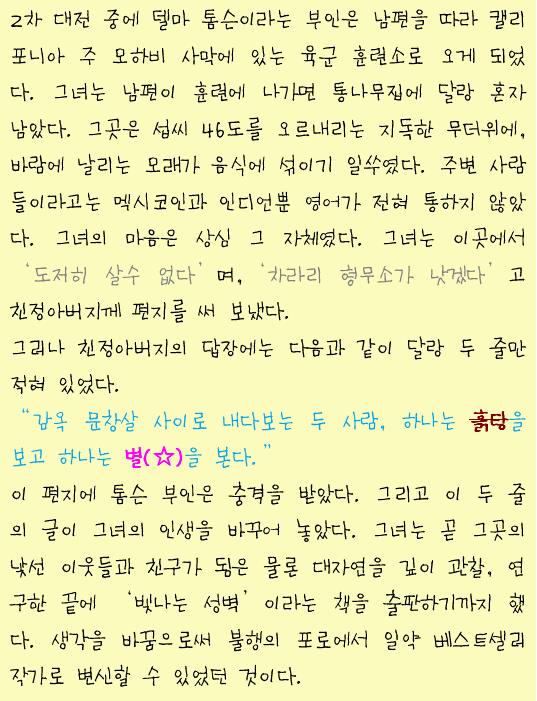 2차 대전 중에 델마 톰슨이라는 부인은 남편을 따라 캘리
포니아 주 모하비 사막에 있는 육군 훈련소로 오게 되었
다. 그녀는 남편이 훈련에 나가면 통나무집에 달랑 혼자
남았다. 그곳은 섭씨 46도를 오르내리는 지독한 무더위에,
바람에 날리는 모래가 음식에 섞이기 일쑤였다. 주변 사람
들이라고는 멕시코인과 인디언뿐 영어가 전혀 통하지 않았
다. 그녀의 마음은 상심 그 자체였다. 그녀는 이곳에서
‘도저히 살수 없다’ 며, ‘차라리 형무소가 낫겠다’ 고
친정아버지께 편지를 써 보냈다.
그러나 친정아버지의 답장에는 다음과 같이 달랑 두 줄만
적혀 있었다.
“감옥 문창살 사이로 내다보는 두 사람, 하나는 흙탕을
보고 하나는 별(☆)을 본다.”
이 편지에 톰슨 부인은 충격을 받았다. 그리고 이 두 줄
의 글이 그녀의 인생을 바꾸어 놓았다. 그녀는 곧 그곳의
낯선 이웃들과 친구가 됨은 물론 대자연을 깊이 관찰, 연
구한 끝에 ‘빛나는 성벽’ 이라는 책을 출판하기까지 했
다. 생각을 바꿈으로써 불행의 포로에서 일약 베스트셀러
작가로 변신할 수 있었던 것이다.